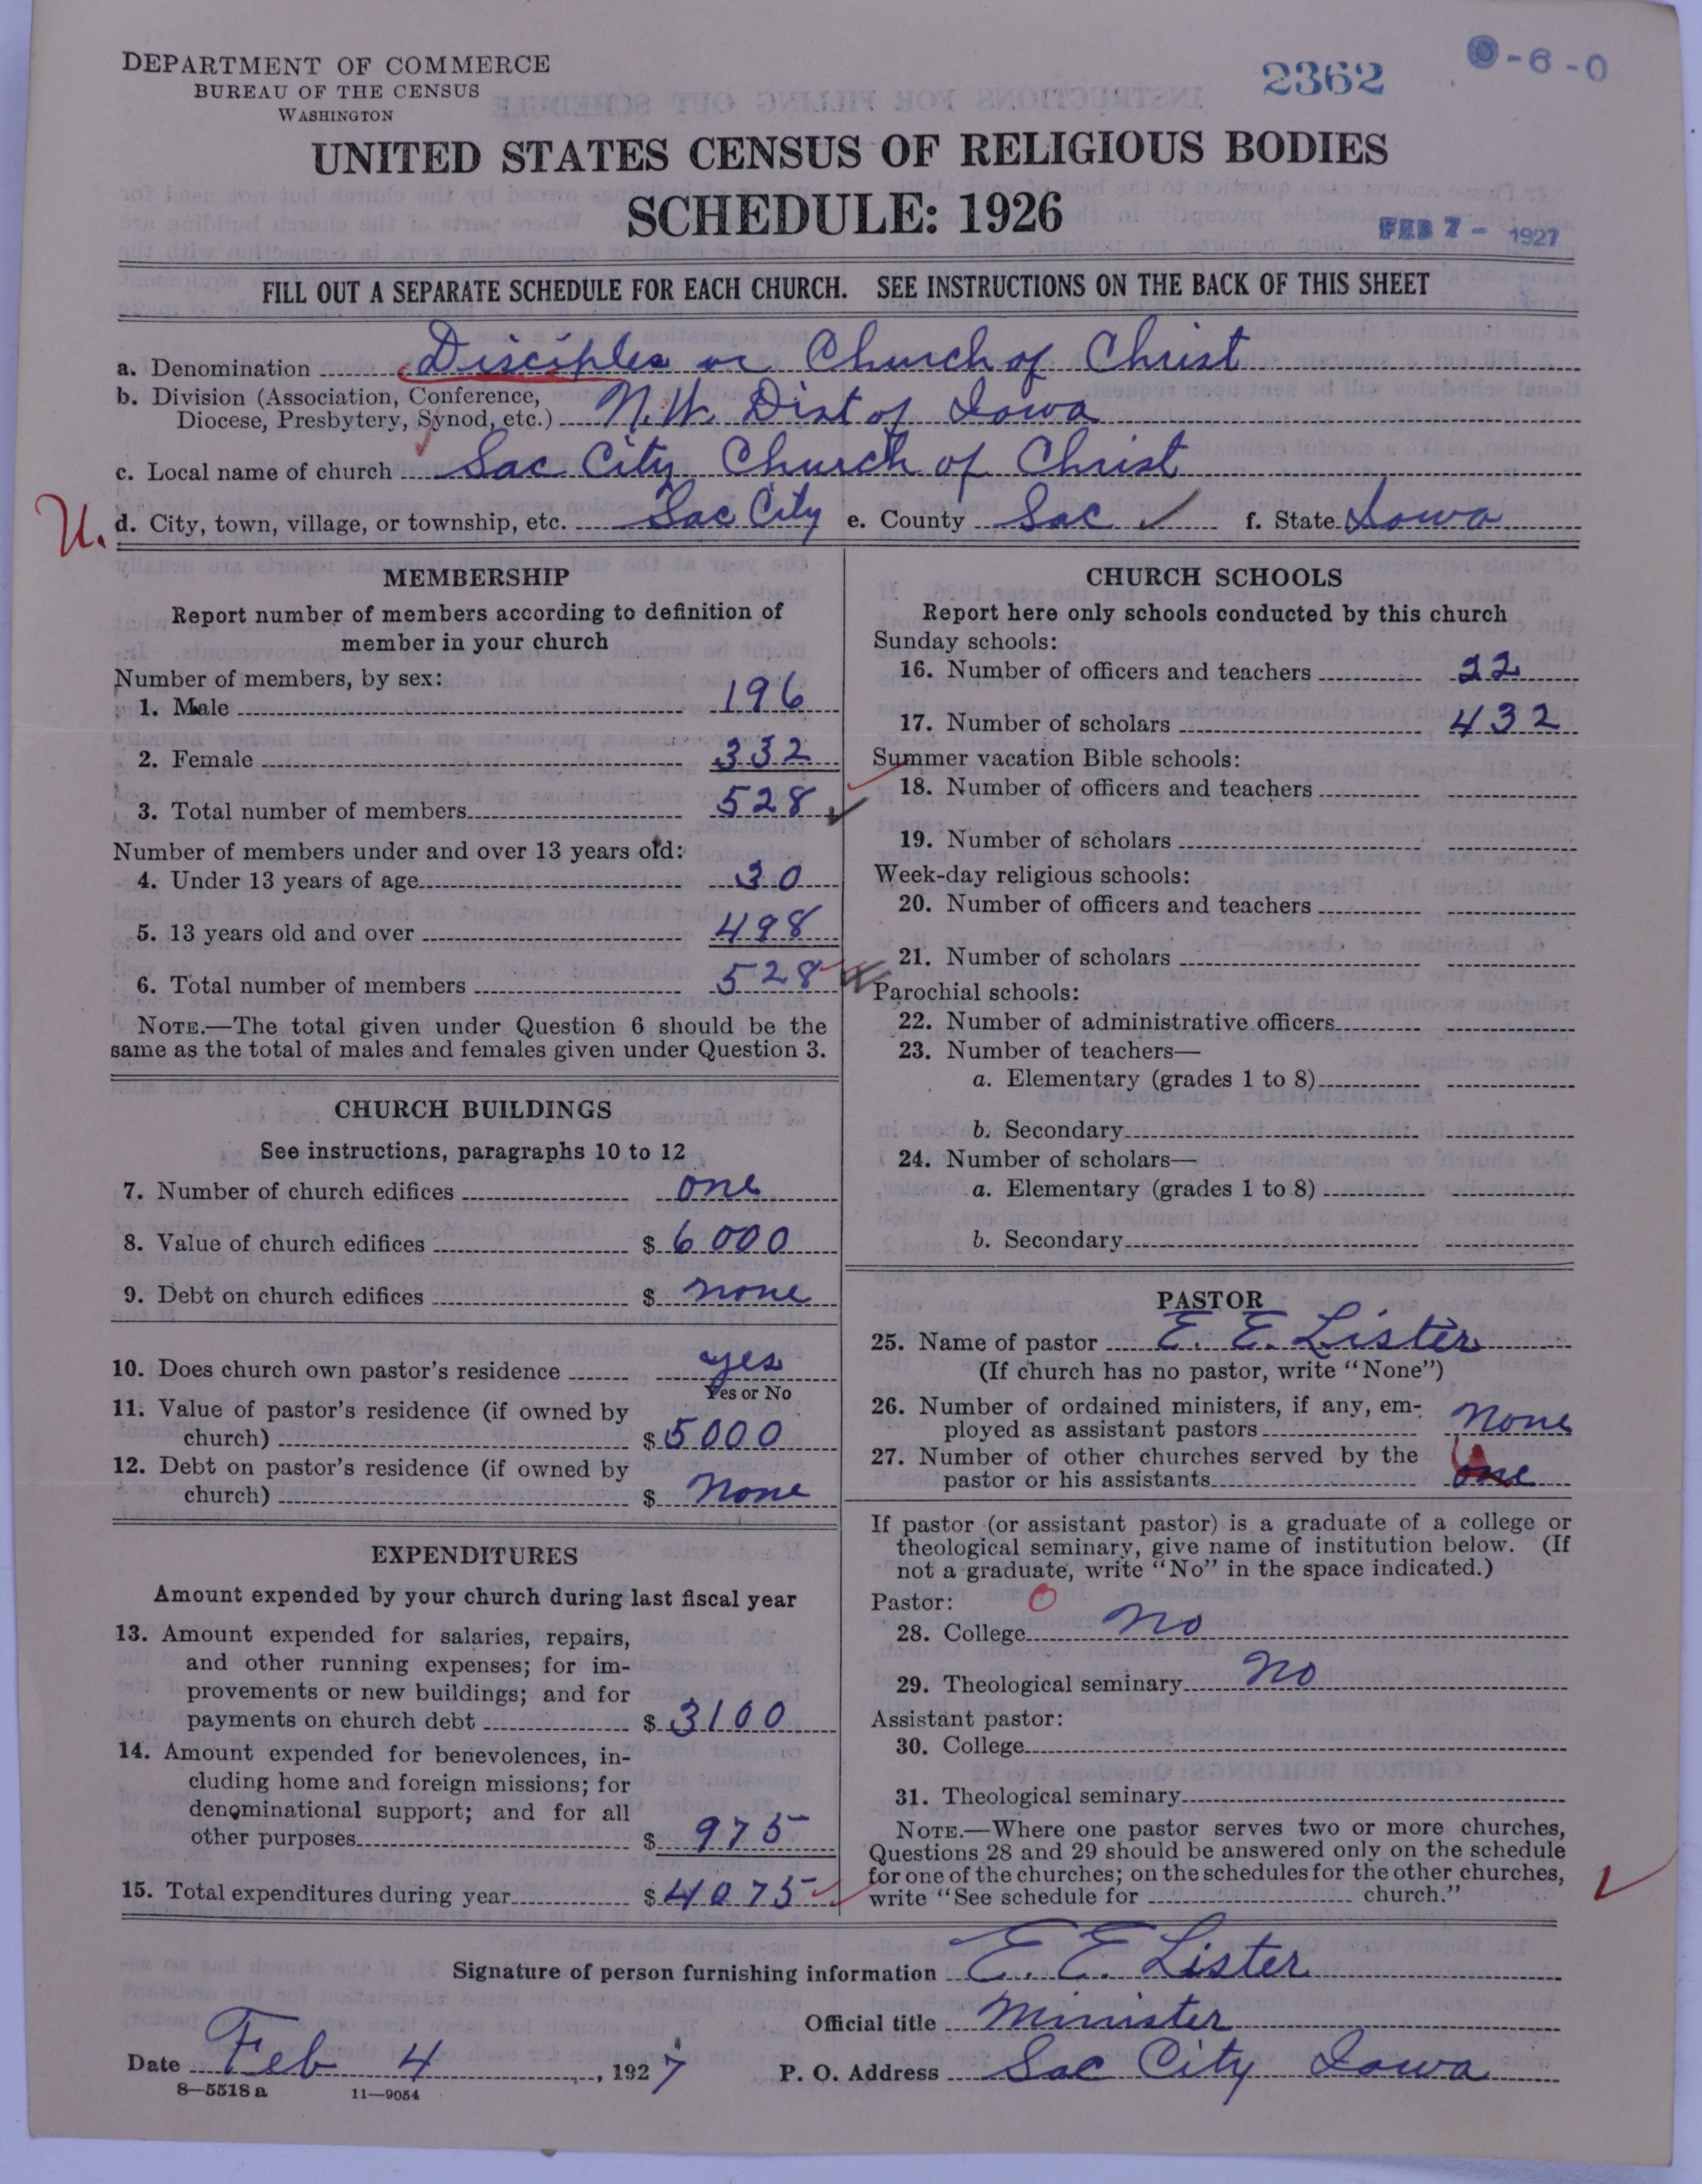 DEPARTMENT OF COMMERCE
BUREAU OF THE CENSUS
WASHINGTON
2362
-6-0
UNITED STATES CENSUS OF RELIGIOUS BODIES
SCHEDULE: 1926
FEB 7 - 1927
FILL OUT A SEPARATE SCHEDULE FOR EACH CHURCH. SEE INSTRUCTIONS ON THE BACK OF THIS SHEET
a. Denomination Disciples or Church of Christ
b. Division (Association, Conference,
Diocese, Presbytery, Synod, etc.) N.W. Dist of Iowa
c. Local name of church Sac City Church of Christ
U. d. City, town, village, or township, etc. Sac City e. County Sac ✓ f. State Iowa
MEMBERSHIP
Report number of members according to definition of
member in your church
Number of members, by sex:
1. Male 196
2. Female 332
3. Total number of members 528
Number of members under and over 13 years old:
4. Under 13 years of age 30
5. 13 years old and over 498
6. Total number of members 528
NOTE.—The total given under Question 6 should be the
same as the total of males and females given under Question 3.
CHURCH BUILDINGS
See instructions, paragraphs 10 to 12
7. Number of church edifices one
8. Value of church edifices $ 6000
9. Debt on church edifices $ none
10. Does church own pastor's residence yes
Yes or No
11. Value of pastor's residence (if owned by
church) $ 5000
12. Debt on pastor's residence (if owned by
church) $ None
EXPENDITURES
Amount expended by your church during last fiscal year
13. Amount expended for salaries, repairs,
and other running expenses; for im-
provements or new buildings; and for
payments on church debt $ 3100
14. Amount expended for benevolences, in-
cluding home and foreign missions; for
denominational support; and for all
other purposes $ 975
15. Total expenditures during year $ 4075
CHURCH SCHOOLS
Report here only schools conducted by this church
Sunday schools:
16. Number of officers and teachers 22
17. Number of scholars 432
Summer vacation Bible schools:
18. Number of officers and teachers
19. Number of scholars
Week-day religious schools:
20. Number of officers and teachers
21. Number of scholars
Parochial schools:
22. Number of administrative officers
23. Number of teachers—
a. Elementary (grades 1 to 8)
b. Secondary
24. Number of scholars—
a. Elementary (grades 1 to 8)
b. Secondary
PASTOR
25. Name of pastor E. E. Lister
(If church has no pastor, write "None")
26. Number of ordained ministers, if any, em-
ployed as assistant pastors None
27. Number of other churches served by the
pastor or his assistants one
If pastor (or assistant pastor) is a graduate of a college or
theological seminary, give name of institution below. (If
not a graduate, write "No" in the space indicated.)
Pastor: O
28. College No
29. Theological seminary No
Assistant pastor:
30. College
31. Theological seminary
NOTE.—Where one pastor serves two or more churches,
Questions 28 and 29 should be answered only on the schedule
for one of the churches; on the schedules for the other churches,
write "See schedule for church."
Signature of person furnishing information E. E. Lister
Official title Minister
Date Feb 4, 1927 P. O. Address Sac City Iowa
8—5518a 11—9054